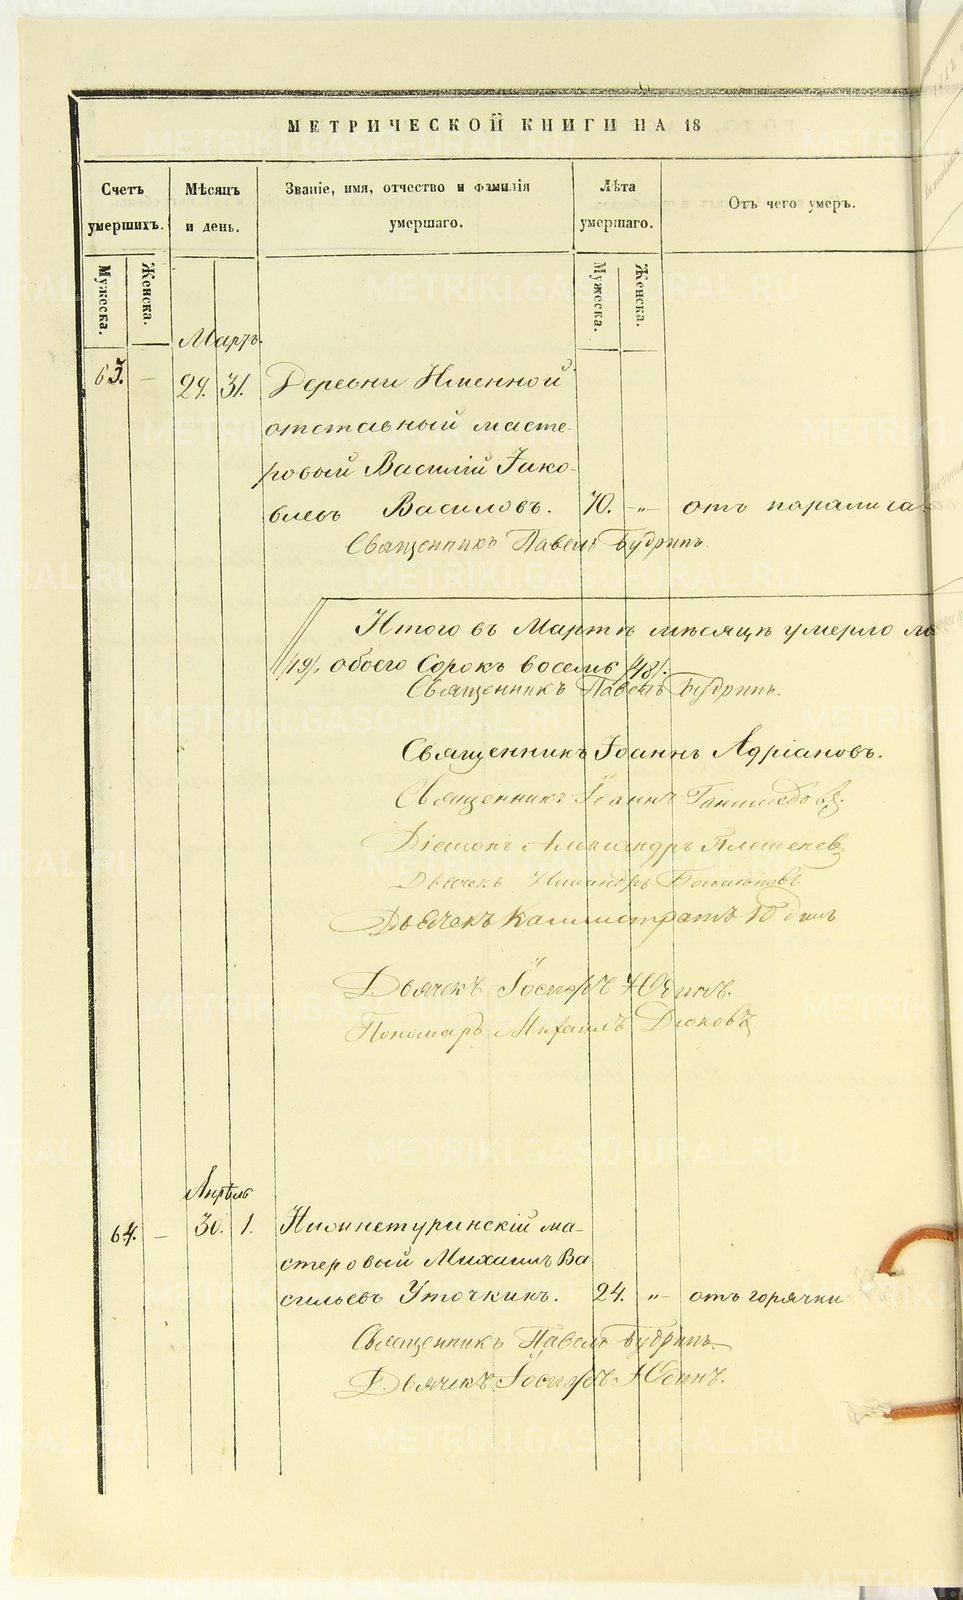 МЕТРИЧЕСКОЙ КНИГИ НА 18
Счетъ умершихъ.
Мѣсяцъ и день.
Званіе, имя, отчество и фамилія умершаго.
Лѣта умершаго.
Отъ чего умеръ.
Мужеска.
Женска.
Мужеска.
Женска.
Мартъ.
63. — 29. 31. Деревни Именной
отставный масте-
ровый Василій Іако-
влевъ Василовъ. 70. -„- отъ паралича
Священникъ Павелъ Будринъ.
Итого въ Мартѣ мѣсяцѣ умерло
обоего Сорокъ восемь /48/.
Священникъ Павелъ Будринъ.
Священникъ Іоаннъ Адріановъ.
Священникъ Іоаннъ
Діаконъ Александръ
Дьячекъ
Дьячекъ Каллистратъ Юдинъ
Дьячекъ Іосифъ Юдинъ.
Пономарь Михаилъ Дюковъ
Апрѣль
64. — 30. 1. Нижнетуринскій ма-
стеровый Михаилъ Ва
сильевъ Уточкинъ. 24. „- отъ горячки
Священникъ Павелъ Будринъ.
Дьячекъ Іосифъ Юдинъ.
METRIKI.GASO-URAL.RU